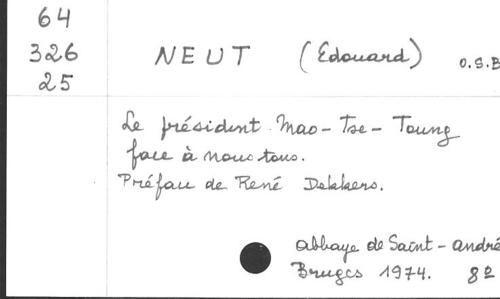 64
326
25
NEUT (Edouard) O.S.B
Le président Mao-Tse-Toung
face à nous tous.
Préface de René Dekkers.
abbaye de Saint-André
Bruges 1974. 8º